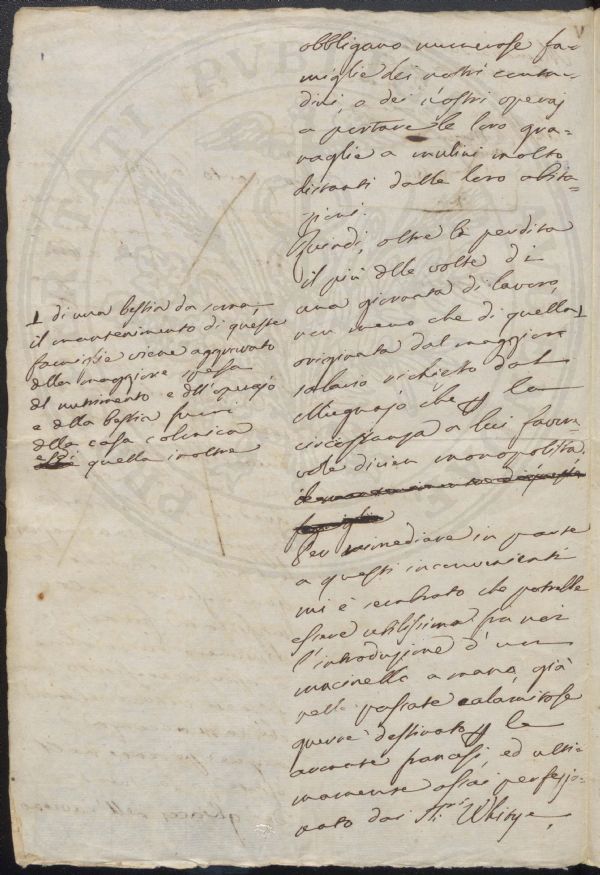 obbligano numerose fa-
miglie dei nostri conta-
dini, e dei nostri operaj
a portare le loro gra-
naglie a mulini molto
distanti dalle loro abita-
zioni.
Quindi, oltre la perdita
il più delle volte di
una giornata di lavoro,
non meno che di quella ⊥
originata dal maggiore
salario richiesto dal
Mugnajo che p la
circostanza a lui favore-
vole divien monopolista.
il mantenimento di queste
famiglie
Per rimediare in parte
a questi inconvenienti
mi è sembrato che potrebbe
essere utilissima fra noi
l'introduzione d'un
macinello a mano, già
nelle passate calamitose
guerre destinato p le
armate francesi, ed ulti-
mamente assai perfezio-
nato dai Sri Whitye,
⊥ di una bestia da soma,
il mantenimento di queste
famiglie viene aggravato
della maggiore spesa
del nutrimento e dell'operajo
e della bestia fuori
della casa colonica
quella inoltre